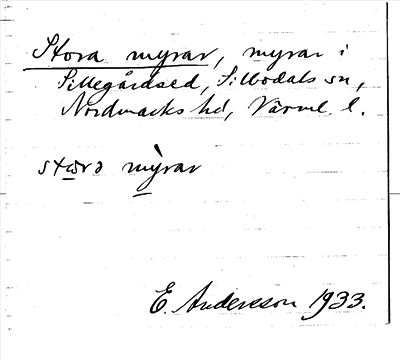 Stora myrar, myrar i
Sillegårdsed, Sillbodals sn,
Nordmarks hd, Värml. l.
stωrə mỳrar
E. Andersson 1933.